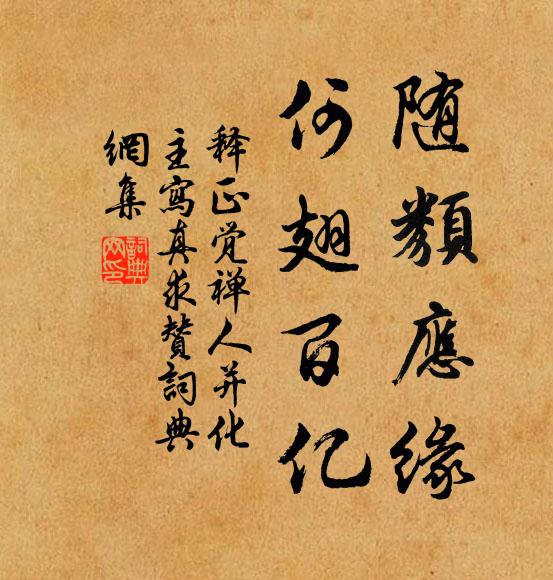 随類應緣
何翅百亿
释正觉禅人并化
主寫真求赞詞典
網集
詞典網印